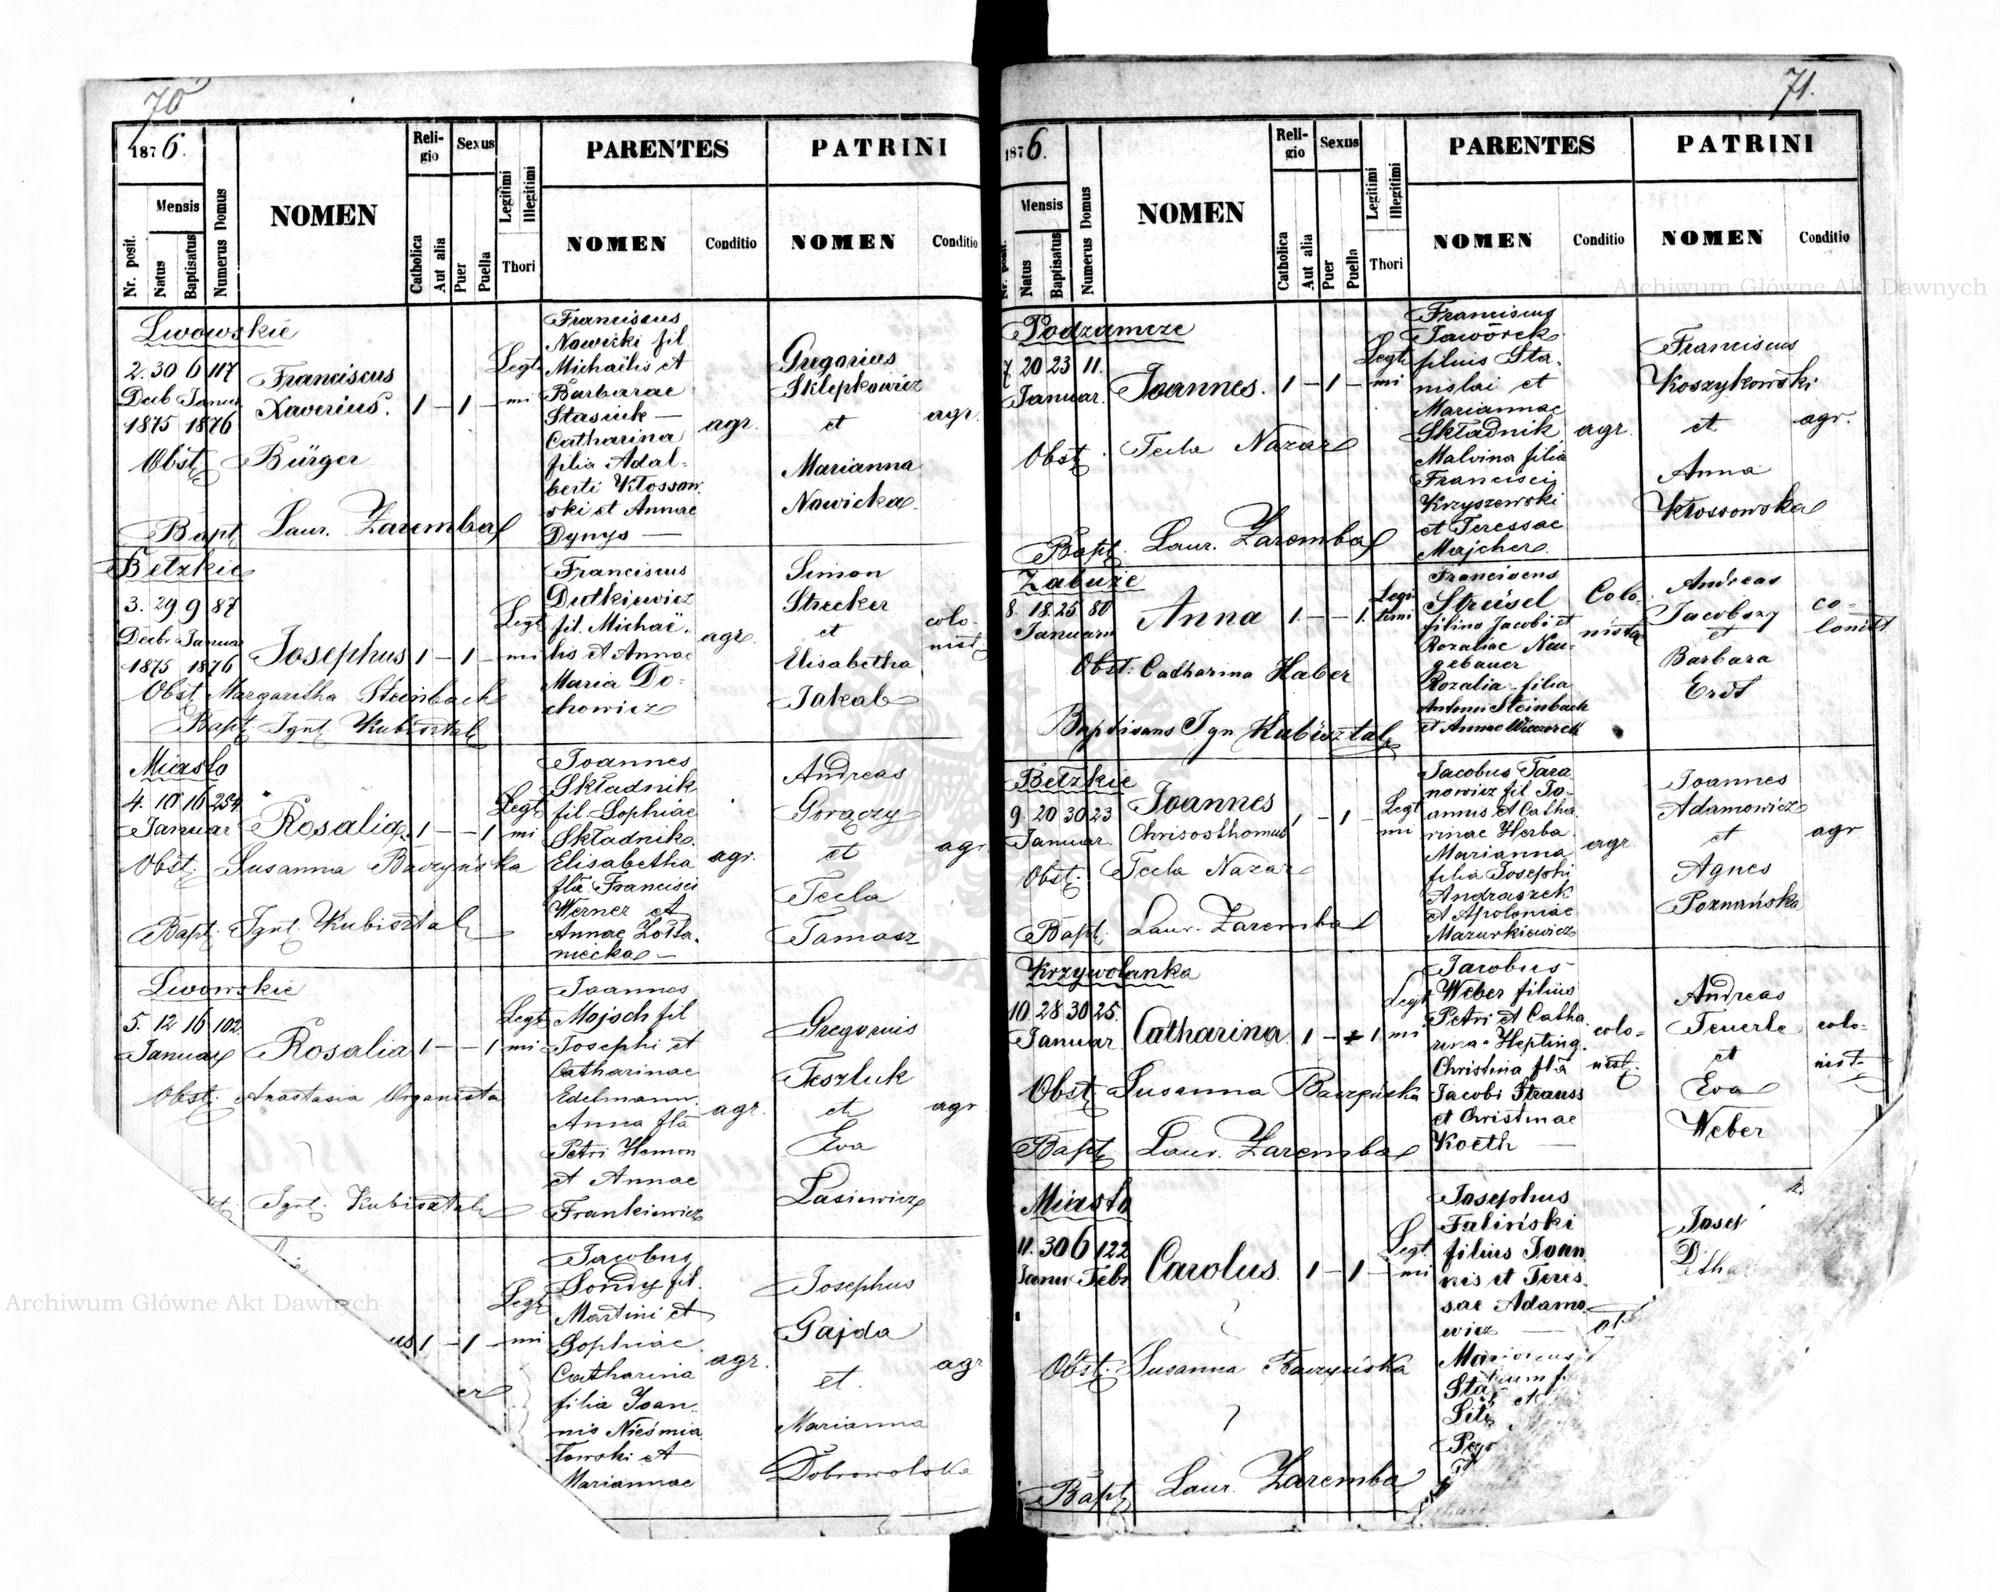 70
1876.
Nr. posit.
Mensis
Natus
Baptisatus
Numerus Domus
NOMEN
Religio
Catholica
Aut alia
Sexus
Puer
Puella
Legitimi
Illegitimi
Thori
PARENTES
NOMEN
Conditio
PATRINI
NOMEN
Conditio
Lwowskie
2. 30 6 117
Decb Januar
1875 1876
Franciscus
Xaverius. 1 – 1 –
Legt
mi
Obst Bürger
Bapt Laur. Zaremba
Franciscus
Nowicki fil.
Michaëlis et
Barbarae
Stasiuk —
Catharina
filia Adal-
berti Kłossow
ski et Annae
Dynys —
agr.
Gregorius
Sklepkowicz
et
Marianna
Nowicka
agr.
Betzkie
3. 29 9 87
Decbr Januar
1875 1876
Josephus 1 – 1 –
Legt
mi
Obst Margaritha Steinbach
Bapt Ignt Kubisztal
Franciscus
Dutkiewicz
fil. Michaë-
lis et Annae
Maria Do-
chowicz
agr.
Simon
Strecker
et
Elisabetha
Jakab
colo-
nist.
Miasto
4. 10 16 254
Januar
Rosalia 1 – – 1
Legt
mi
Obst. Susanna Baczyńska
Bapt. Ignt. Kubisztal
Joannes
Składnik
fil. Sophiae
Składnik
Elisabetha
fla Francisci
Werner et
Annae Zołta-
niecka —
agr.
Andreas
Gorączy
et
Tecla
Tamasz
agr
Lwowskie
5. 12 16 102
Januar
Rosalia 1 – – 1
Legt
mi
Obst. Anastasia Organista
Ignt. Kubisztal
Joannes
Mojsch fil
Josephi et
Catharinae
Edelmann
Anna fla
Petri Hamon
et Annae
Frankiewicz
agr.
Gregorius
Teszluk
et
Eva
Lasiewicz
agr
us 1 – 1 –
Legt
mi
er
Jacobus
Sondy fil.
Martini et
Sophiae
Catharina
filia Joan-
nis Nieśmia
łowski et
Mariannae
agr.
Josephus
Gajda
et.
Marianna
Dobrowolska
agr
71.
1876.
Nr. posit.
Mensis
Natus
Baptisatus
Numerus Domus
NOMEN
Religio
Catholica
Aut alia
Sexus
Puer
Puella
Legitimi
Illegitimi
Thori
PARENTES
NOMEN
Conditio
PATRINI
NOMEN
Conditio
Podzamcze
7 20 23 11.
Januar.
Joannes. 1 – 1 –
Legt
mi
Obst. Tecla Nazar
Bapt. Laur. Zaremba
Franciscus
Jaworek
filius Sta-
nislai et
Mariannae
Składnik
Malvina filia
Francisci
Krzyszewski
et Teressae
Majcher
agr.
Franciscus
Koszykowski
et
Anna
Kłossowska
agr.
Zabuże
8. 18. 25 80
Januarii
Anna 1 – – 1.
Legi
timi
Obst: Catharina Haber
Baptisans Ign Kubisztal
Franciscus
Streisel
filius Jacobi et
Rozaliae Neu-
gebauer
Rozalia filia
Antonii Steinbach
et Annae Wieczorek
Colo-
nista
Andreas
Jacobszy
et
Barbara
Erdt
co-
lonist
Betzkie
9. 20 30 23
Januar.
Joannes
Chrisosthomus 1 – 1 –
Legt
mi
Obst. Tecla Nazar
Bapt. Laur. Zaremba
Jacobus Tara
nowicz fil Jo-
annis et Catha
rinae Herba.
Marianna
filia Josephi
Andraszek
et Apoloniae
Mazurkiewicz
agr
Joannes
Adamowicz
et
Agnes
Poznańska
agr
Krzywolanka
10. 28 30 25.
Januar.
Catharina 1 – – 1
Legt
mi
Obst. Susanna Baczyńska
Bapt Laur. Zaremba
Jacobus
Weber filius
Petri et Catha
rina Hepting
Christina fla
Jacobi Strauss
et Christinae
Koeth —
colo-
nist.
Andreas
Feuerle
et
Eva
Weber
colo-
nist.
Miasto
11. 30 6 122
Janu Febr
Carolus. 1 – 1 –
Legt.
mi
Obst. Susanna Baczyńska
Bapt Laur. Zaremba
Josephus
Faliński
filius Joan
nis et Teres-
sae Adamo-
wicz —
Josef
Archiwum Główne Akt Dawnych
Archiwum Główne Akt Dawnych